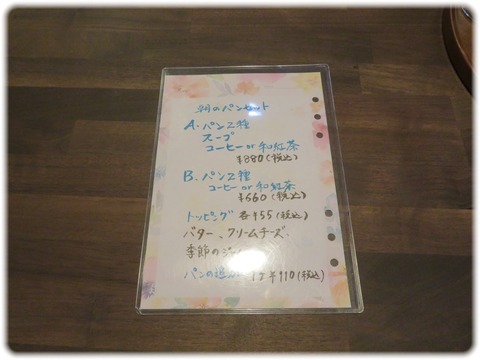 朝のパンセット
A. パン2種
スープ
コーヒー or 和紅茶
¥880(税込)
B. パン2種
コーヒー or 和紅茶
¥660(税込)
トッピング 各¥55(税込)
バター、クリームチーズ、
季節の
パンの追加 ¥110(税込)